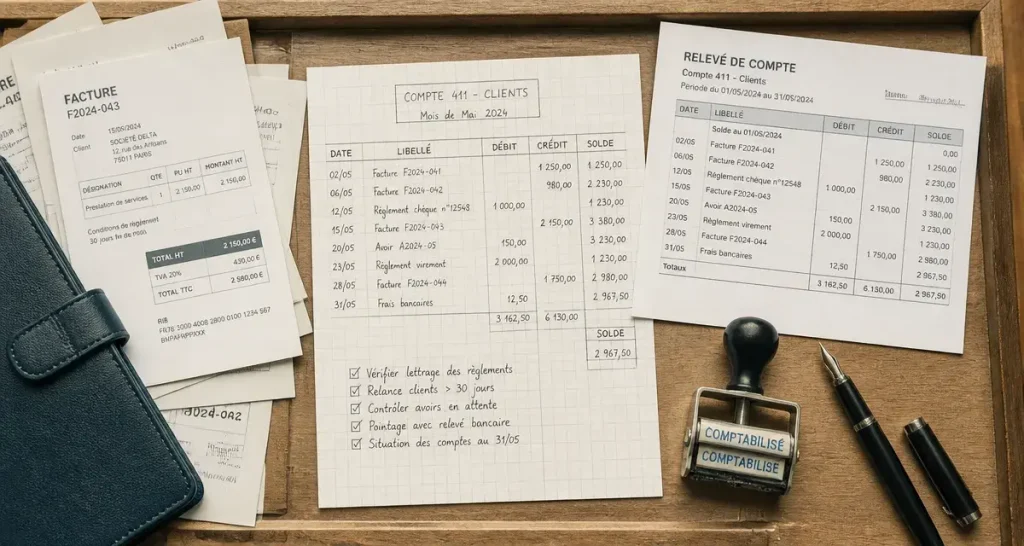 FACTURE
F2024-043
Date 15/05/2024
Client SOCIÉTÉ DELTA
12, rue des Artisans
75011 PARIS
DÉSIGNATION QTE PU HT MONTANT HT
Prestation de services 1 2 150,00 2 150,00
Conditions de règlement
30 jours fin de mois
TOTAL HT 2 150,00 €
TVA 20% 430,00 €
TOTAL TTC 2 580,00 €
RIB
COMPTE 411 - CLIENTS
Mois de Mai 2024
DATE LIBELLÉ DÉBIT CRÉDIT SOLDE
02/05 Facture F2024-041 1 250,00 1 250,00
06/05 Facture F2024-042 980,00 2 230,00
12/05 Règlement chèque n°12548 1 000,00 1 230,00
15/05 Facture F2024-043 2 150,00 3 380,00
20/05 Avoir A2024-05 150,00 3 230,00
23/05 Règlement virement 2 000,00 1 230,00
28/05 Facture F2024-044 1 750,00 2 980,00
31/05 Frais bancaires 12,50 2 967,50
3 162,50 6 130,00
SOLDE
2 967,50
☑ Vérifier lettrage des règlements
☑ Relance clients > 30 jours
☑ Contrôler avoirs en attente
☑ Pointage avec relevé bancaire
☑ Situation des comptes au 31/05
RELEVÉ DE COMPTE
Compte 411 - Clients
Période du 01/05/2024 au 31/05/2024
DATE LIBELLÉ DÉBIT CRÉDIT SOLDE
Solde au 01/05/2024 0,00
02/05 Facture F2024-041 1 250,00 1 250,00
06/05 Facture F2024-042 980,00 2 230,00
12/05 Règlement chèque n°12548 1 000,00 1 230,00
15/05 Facture F2024-043 2 150,00 3 380,00
20/05 Avoir A2024-05 150,00 3 230,00
23/05 Règlement virement 2 000,00 1 230,00
28/05 Facture F2024-044 1 750,00 2 980,00
31/05 Frais bancaires 12,50 2 967,50
Totaux 3 162,50 6 130,00 2 967,50
COMPTABILISÉ
COMPTABILISÉ